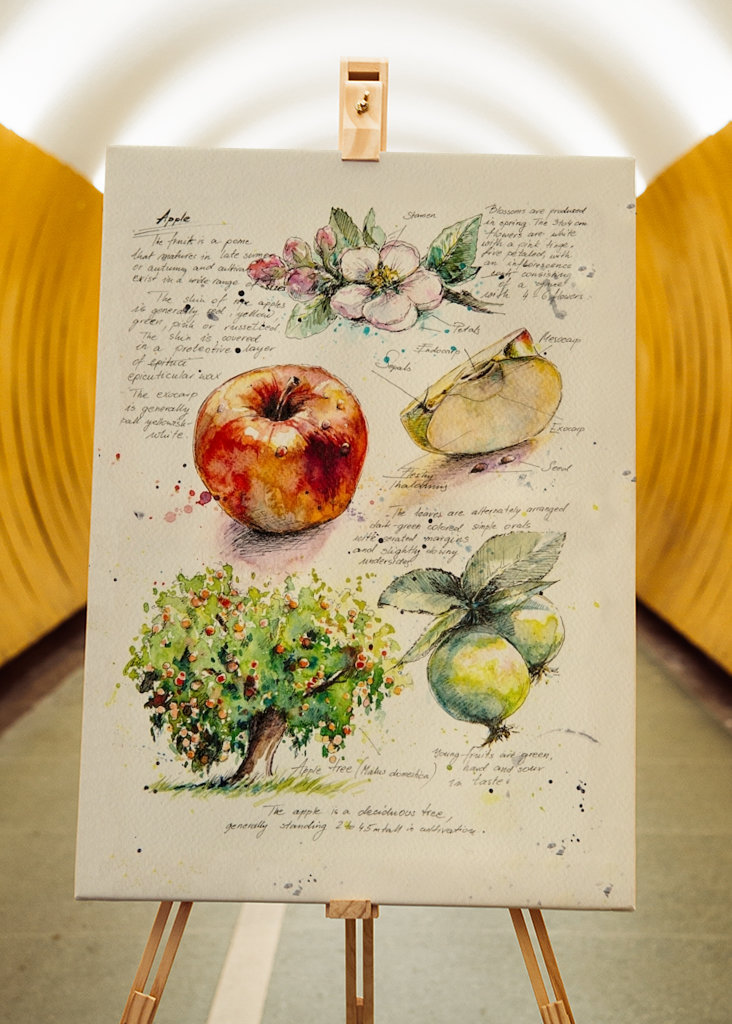 Apple
The fruit is a pome
that matures in late summ
or autumn, and cultivar
exist in a wide range of sizes
The skin of ripe apples
is generally red, yellow,
green, pink or russetted
The skin is covered
in a protective layer
of epicuti
epicuticular wax
The exocarp
is generally
pale yellowish-
white.
Stamen
Blossoms are produced
in spring. The 3 to 4 cm
flowers are white
with a pink tinge,
five petaled, with
an inflorescence
consisting
of a
with 4-6 flowers.
Petals
Endocarp
Mesocarp
Sepals
Exocarp
Seed
Fleshy
The leaves are alternately arranged
dark-green colored simple ovals
with serated margins
and slightly downy
undersides
Apple tree (Malus domestica)
Young fruits are green,
hard and sour
in taste
The apple is a deciduous tree,
generally standing 2 to 4.5 m tall in cultivation.